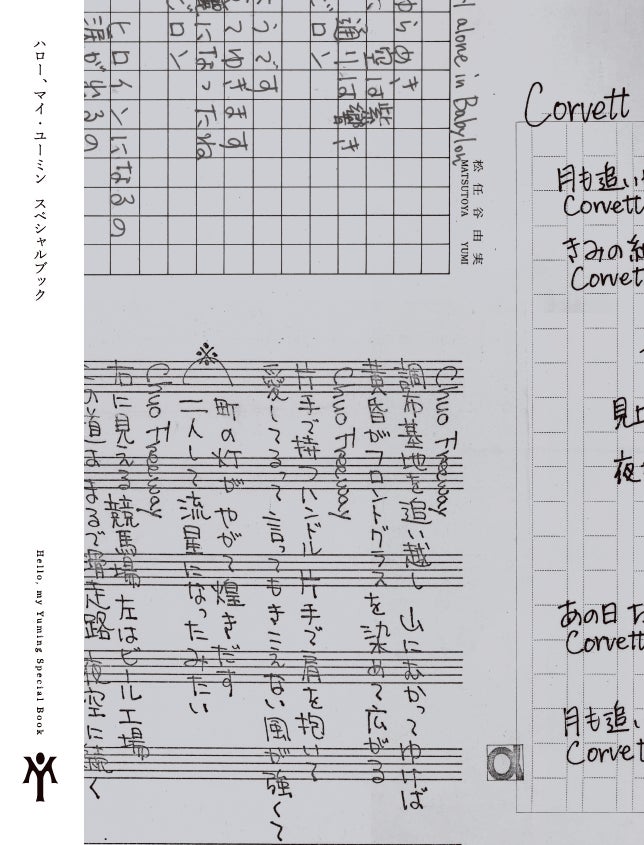 ハロー、マイ・ユーミン スペシャルブック
Hello, my Yuming Special Book
alone in Babylon
らめき
空は紫
通りは響き
ロン
うです
てゆきます
になったね
ロン
ヒロインになるの
涙がかれるの
松任谷由実
MATSUTOYA YUMI
Chuo Freeway
調布基地を追い越し 山にむかってゆけば
黄昏がフロントグラスを染めて広がる
Chuo Freeway
片手で持つハンドル 片手で肩を抱いて
愛してるって言ってもきこえない 風が強くて
※
町の灯がやがて煌きだす
二人して流星になったみたい
Chuo Freeway
右に見える競馬場 左はビール工場
この道はまるで滑走路 夜空に続く
Corvett
月も追い
Corvett
きみの
Corvett
見上
夜
あの日
Corvett
月も追い
Corvett